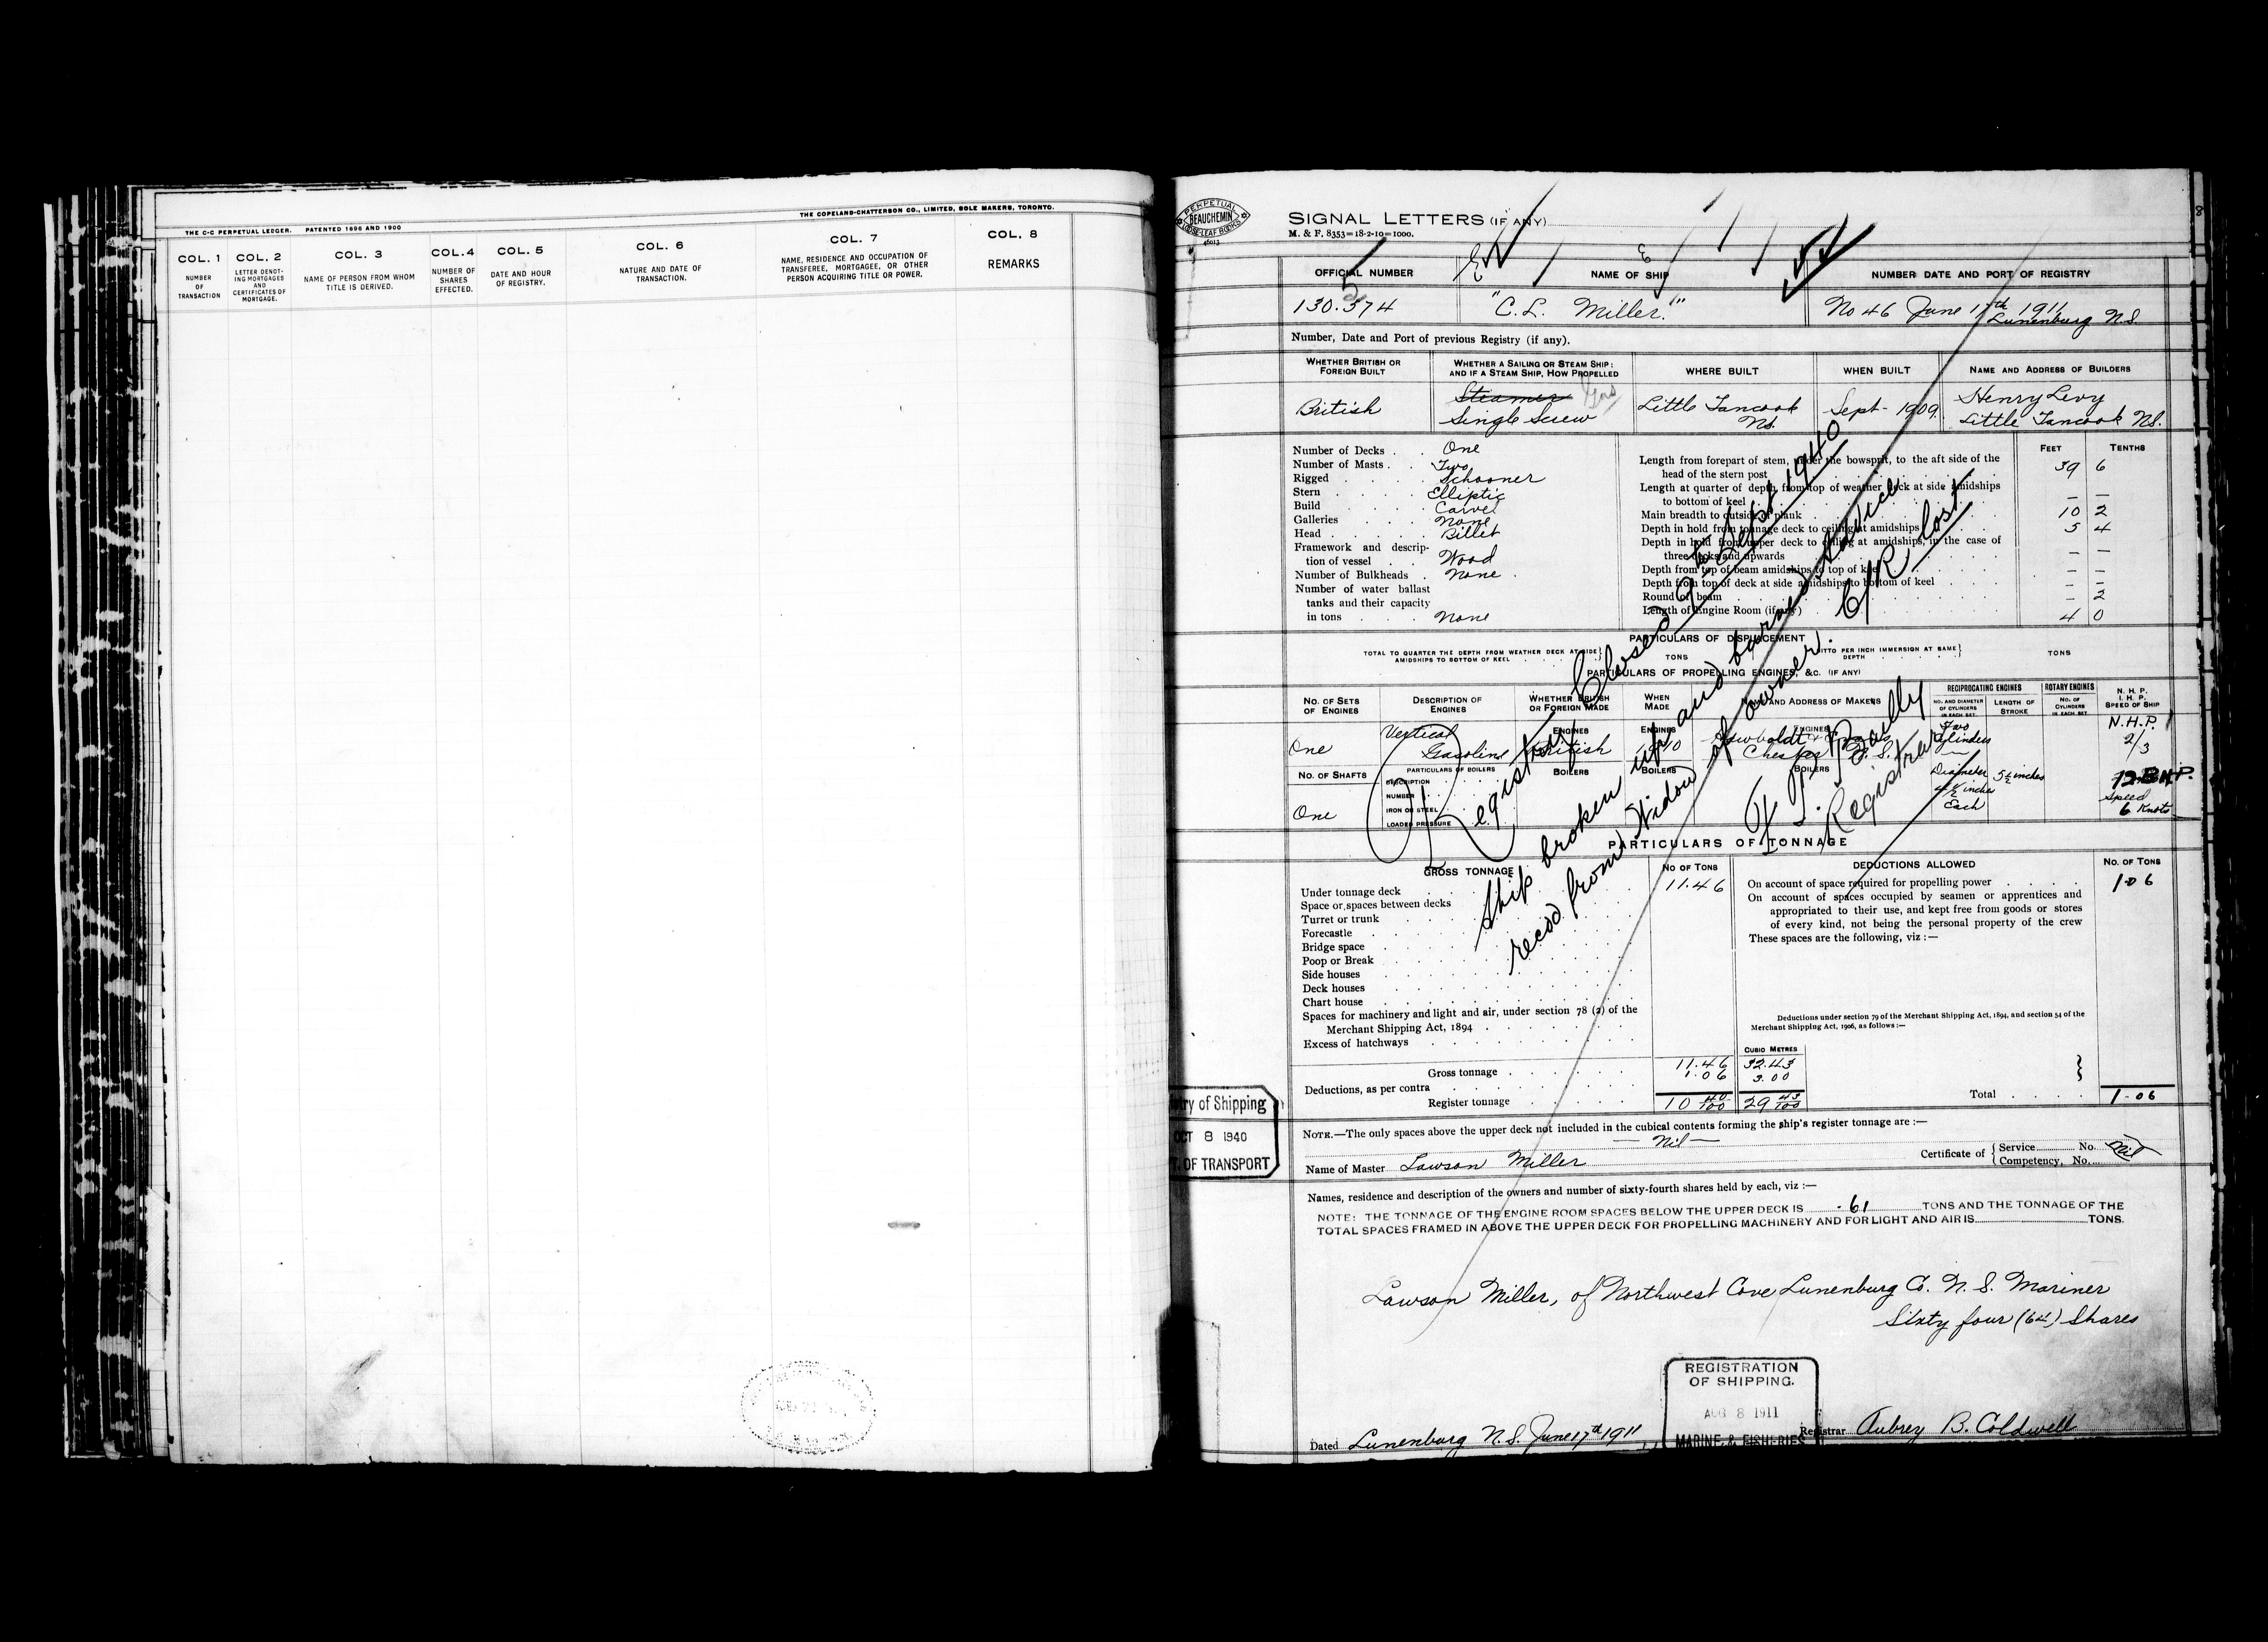 THE C-C PERPETUAL LEDGER. PATENTED 1896 AND 1900
THE COPELAND-CHATTERSON CO., LIMITED, SOLE MAKERS, TORONTO.
COL. 1
NUMBER OF TRANSACTION
COL. 2
LETTER DENOTING MORTGAGES AND CERTIFICATES OF MORTGAGE.
COL. 3
NAME OF PERSON FROM WHOM TITLE IS DERIVED.
COL. 4
NUMBER OF SHARES EFFECTED.
COL. 5
DATE AND HOUR OF REGISTRY.
COL. 6
NATURE AND DATE OF TRANSACTION.
COL. 7
NAME, RESIDENCE AND OCCUPATION OF TRANSFEREE, MORTGAGEE, OR OTHER PERSON ACQUIRING TITLE OR POWER.
COL. 8
REMARKS
PERPETUAL
BEAUCHEMIN
LOOSE-LEAF BOOKS
SIGNAL LETTERS (IF ANY)
M. & F. 8353=18-2-10=1000.
OFFICIAL NUMBER
NAME OF SHIP
NUMBER DATE AND PORT OF REGISTRY
130.574
"C. L. Miller."
No 46 June 17th 1911
Lunenburg N.S.
Number, Date and Port of previous Registry (if any).
WHETHER BRITISH OR FOREIGN BUILT
WHETHER A SAILING OR STEAM SHIP: AND IF A STEAM SHIP, HOW PROPELLED
WHERE BUILT
WHEN BUILT
NAME AND ADDRESS OF BUILDERS
British
Steamer Gas
Single Screw
Little Tancook
NS.
Sept- 1909.
Henry Levy
Little Tancook NS.
Number of Decks . . One
Number of Masts . . Two
Rigged . . . . Schooner
Stern . . . . Elliptic
Build . . . . Carvel
Galleries . . . None
Head . . . . Billet
Framework and description of vessel . . Wood
Number of Bulkheads . None
Number of water ballast tanks and their capacity in tons . . . None
FEET TENTHS
Length from forepart of stem, under the bowsprit, to the aft side of the head of the stern post 39 6
Length at quarter of depth from top of weather deck at side amidships to bottom of keel — —
Main breadth to outside of plank 10 2
Depth in hold from tonnage deck to ceiling at amidships 5 4
Depth in hold from upper deck to ceiling at amidships, in the case of three decks and upwards — —
Depth from top of beam amidships to top of keel — —
Depth from top of deck at side amidships to bottom of keel — —
Round of beam — 2
Length of Engine Room (if any) 4 0
PARTICULARS OF DISPLACEMENT
TOTAL TO QUARTER THE DEPTH FROM WEATHER DECK AT SIDE AMIDSHIPS TO BOTTOM OF KEEL TONS
DITTO PER INCH IMMERSION AT SAME DEPTH TONS
PARTICULARS OF PROPELLING ENGINES, &C. (IF ANY)
NO. OF SETS OF ENGINES
DESCRIPTION OF ENGINES
WHETHER BRITISH OR FOREIGN MADE
WHEN MADE
NAME AND ADDRESS OF MAKERS
RECIPROCATING ENGINES
NO. AND DIAMETER OF CYLINDERS IN EACH SET
LENGTH OF STROKE
ROTARY ENGINES
NO. OF CYLINDERS IN EACH SET
N. H. P.
I. H. P.
SPEED OF SHIP
One
Vertical
Gasoline
ENGINES
British
ENGINES
ENGINES
Chester N.S.
Two
Cylinders
Diameter
Each
5½ inches
N.H.P.
2/3
12 B.H.P.
Speed
6 Knots
NO. OF SHAFTS
One
PARTICULARS OF BOILERS
DESCRIPTION
NUMBER
IRON OR STEEL
LOADED PRESSURE
BOILERS
BOILERS
BOILERS
Registry Closed 9th Sept. 1940
Ship broken up and burned. Advice
recd from Widow of owner. C/R lost
Registrar
PARTICULARS OF TONNAGE
GROSS TONNAGE
NO OF TONS
DEDUCTIONS ALLOWED
NO. OF TONS
Under tonnage deck 11.46
Space or spaces between decks
Turret or trunk
Forecastle
Bridge space
Poop or Break
Side houses
Deck houses
Chart house
Spaces for machinery and light and air, under section 78 (2) of the Merchant Shipping Act, 1894
Excess of hatchways
On account of space required for propelling power 1.06
On account of spaces occupied by seamen or apprentices and appropriated to their use, and kept free from goods or stores of every kind, not being the personal property of the crew
These spaces are the following, viz :—
Deductions under section 79 of the Merchant Shipping Act, 1894, and section 54 of the Merchant Shipping Act, 1906, as follows :—
CUBIC METRES
Gross tonnage 11.46 32.43
Deductions, as per contra 1.06 3.00
Register tonnage 10 40/100 29 43/100
Total 1.06
NOTE.—The only spaces above the upper deck not included in the cubical contents forming the ship's register tonnage are :—
— Nil —
Name of Master Lawson Miller
Certificate of { Service No. Nil
{ Competency, No.
Names, residence and description of the owners and number of sixty-fourth shares held by each, viz :—
NOTE: THE TONNAGE OF THE ENGINE ROOM SPACES BELOW THE UPPER DECK IS .61 TONS AND THE TONNAGE OF THE
TOTAL SPACES FRAMED IN ABOVE THE UPPER DECK FOR PROPELLING MACHINERY AND FOR LIGHT AND AIR IS TONS.
Lawson Miller, of Northwest Cove Lunenburg Co. N. S. Mariner
Sixty four (64) Shares
of Shipping
OCT 8 1940
OF TRANSPORT
REGISTRATION
OF SHIPPING.
AUG 8 1911
MARINE & FISHERIES
Dated Lunenburg N.S. June 17th 1911
Registrar Aubrey B. Coldwell